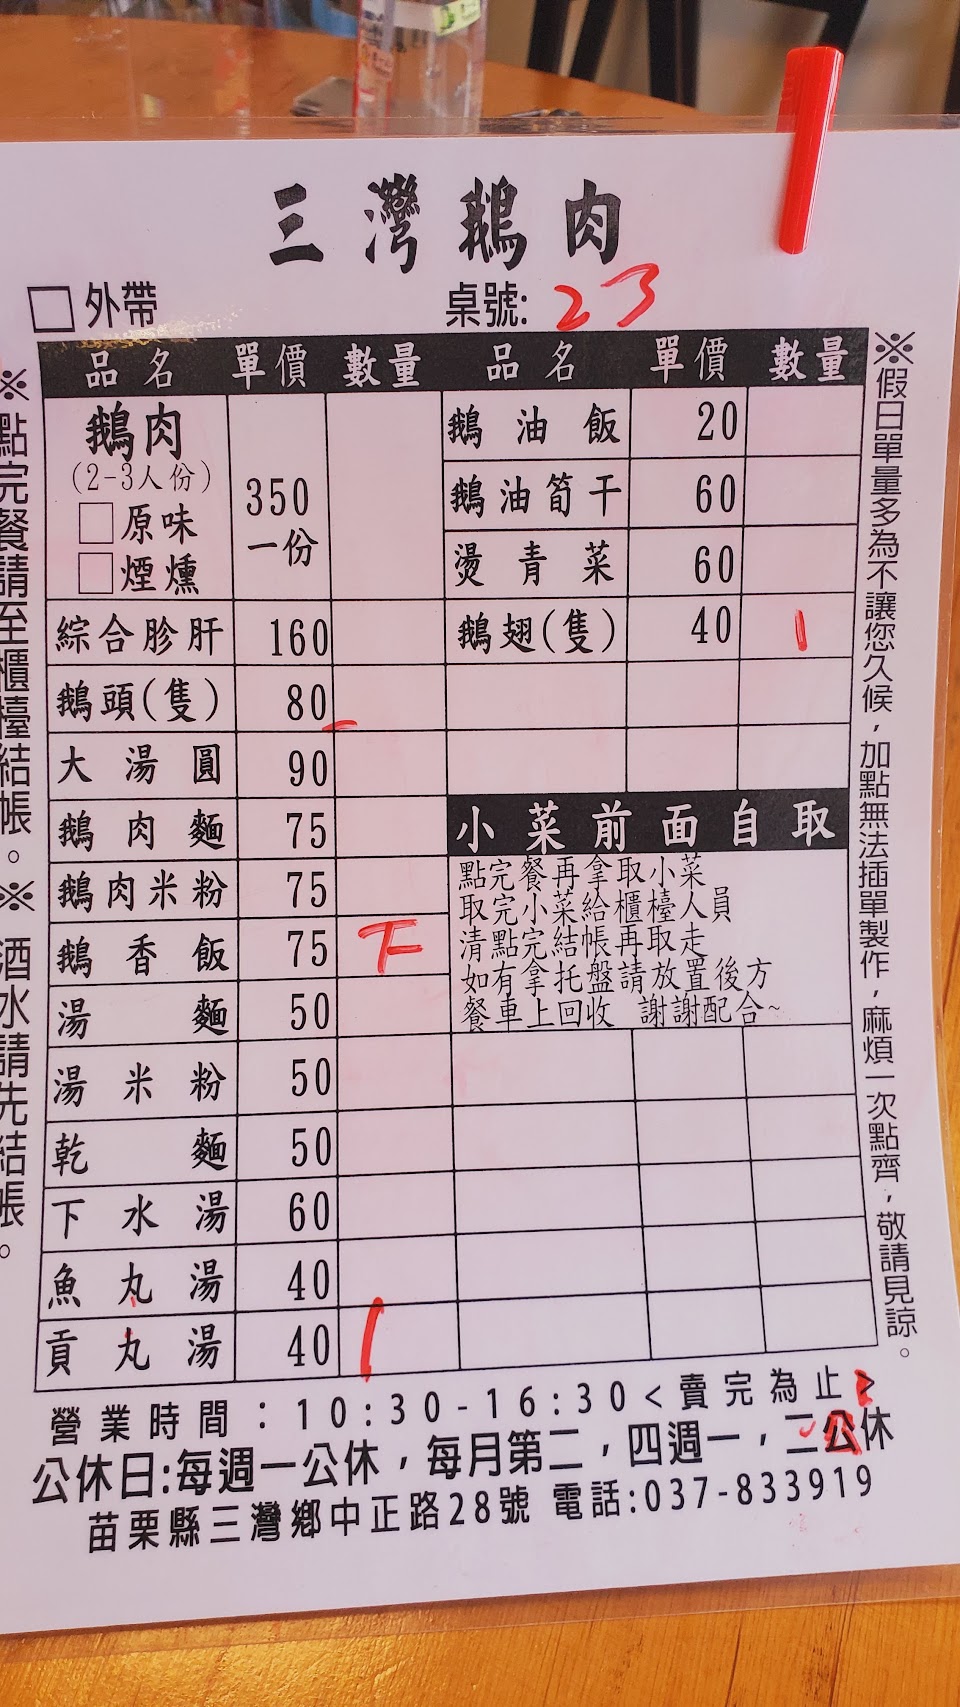 三灣鵝肉
□外帶 桌號: 23
品名 單價 數量 品名 單價 數量
鵝肉
(2-3人份)
□原味
□煙燻
350
一份
綜合胗肝 160
鵝頭(隻) 80
大湯圓 90
鵝肉麵 75
鵝肉米粉 75
鵝香飯 75 下
湯麵 50
湯米粉 50
乾麵 50
下水湯 60
魚丸湯 40
貢丸湯 40 1
鵝油飯 20
鵝油筍干 60
燙青菜 60
鵝翅(隻) 40 1
小菜前面自取
點完餐再拿取小菜
取完小菜給櫃檯人員
清點完結帳再取走
如有拿托盤請放置後方
餐車上回收 謝謝配合~
※假日單量多為不讓您久候,加點無法插單製作,麻煩一次點齊,敬請見諒。
※點完餐請至櫃檯結帳。※酒水請先結帳。
營業時間:10:30-16:30<賣完為止>
公休日:每週一公休,每月第二,四週一,二公休
苗栗縣三灣鄉中正路28號 電話:037-833919